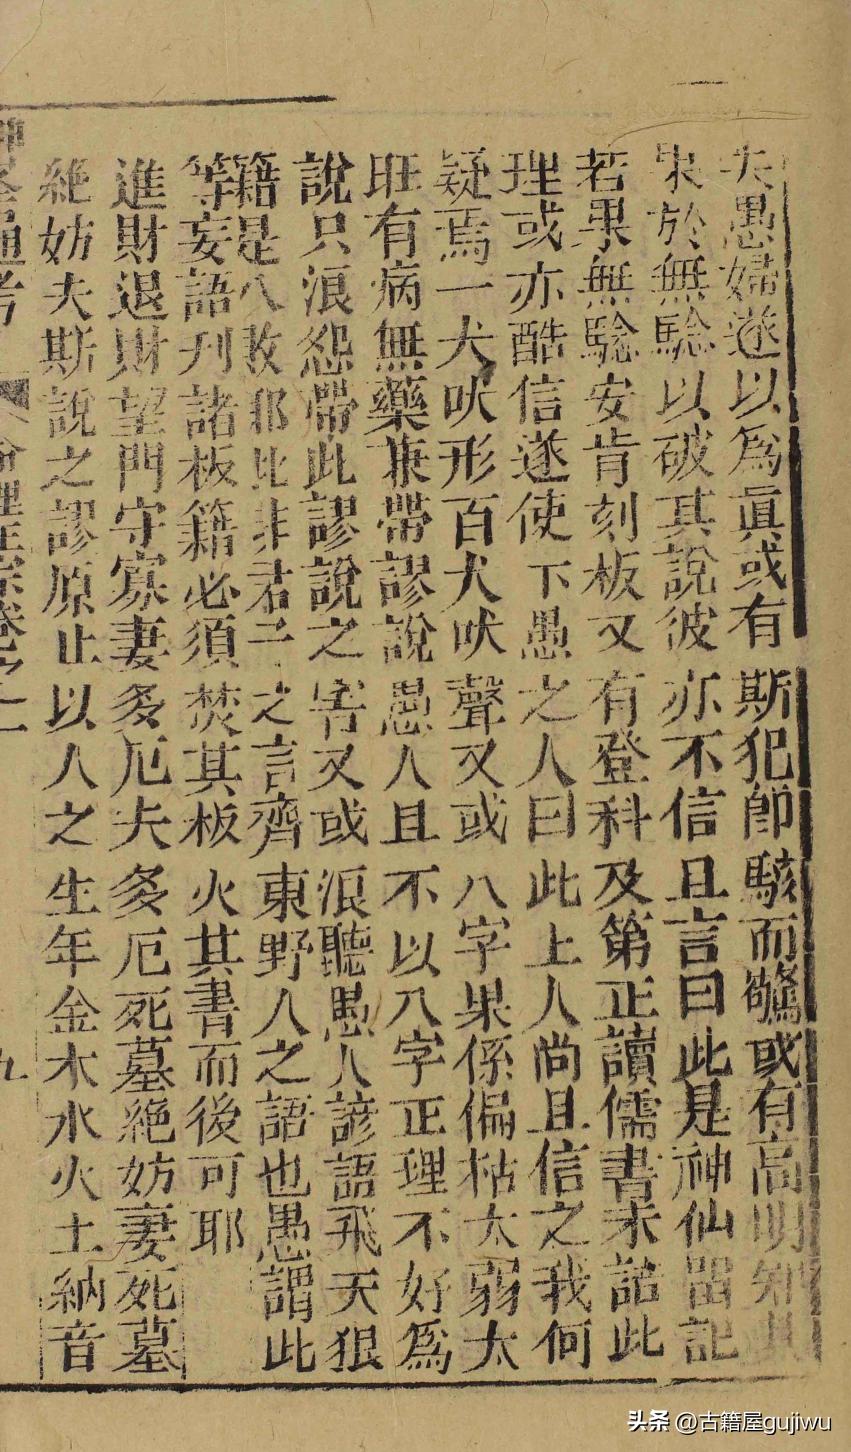 夫愚婦遂以為眞或有斯犯卽駭而驚或有高明知其
於無驗以破其說彼亦不信且言曰此是神仙畱記
若果無驗安肯刻板又有登科及第正讀儒書未諳此
理或亦酷信遂使下愚之人曰此上人尚且信之我何
疑焉一犬吠形百犬吠聲又或八字果係偏枯太弱太
旺有病無藥兼帶謬說愚人且不以八字正理不好為
說只浪怨帶此謬說之害又或浪聽愚人諺語飛天狠
籍是八敗耶此非君子之言齊東野人之語也愚謂此
等妄語刋諸板籍必須焚其板火其書而後可耶
進財退財望門守寡妻多厄夫多厄死墓絕妨妻死墓
絕妨夫斯說之謬原止以人之生年金木水火土納音
通考 命理正宗卷之 九
头条 @古籍屋gujiwu